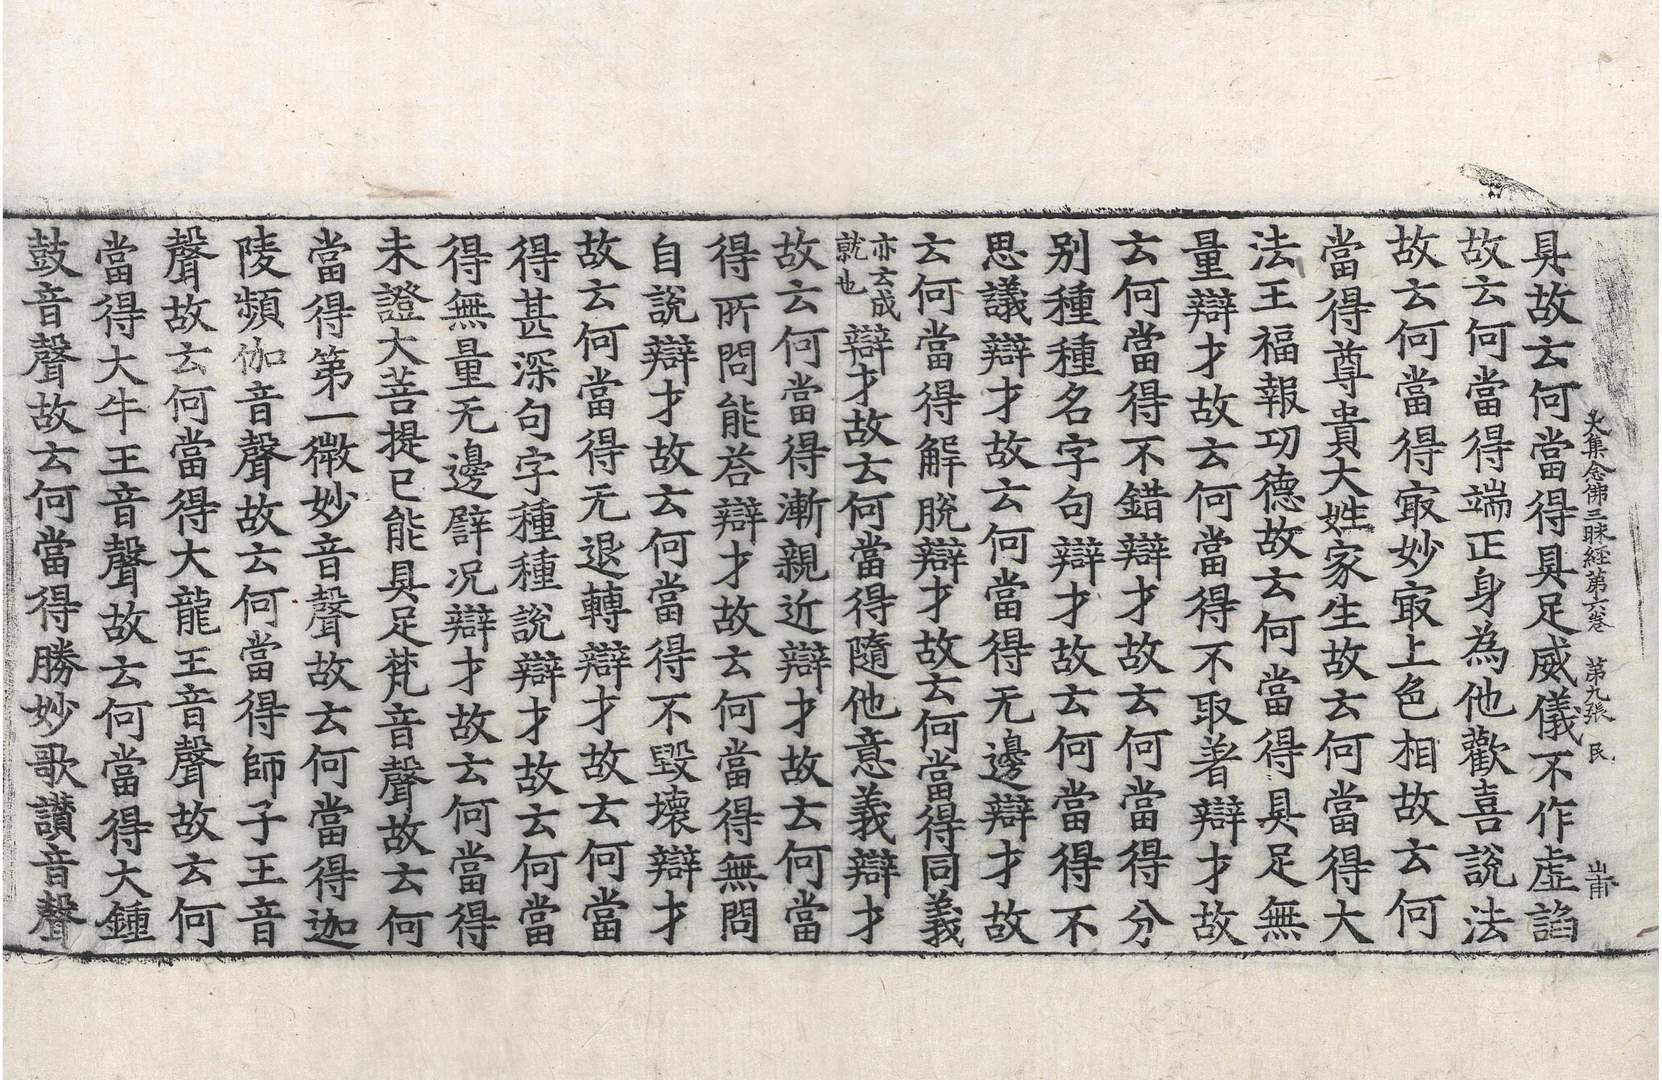 大集念佛三昧経第六卷 第九張 民 山甫
具故云何當得具足威儀不作虛諂
故云何當得端正身為他歡喜說法
故云何當得㝡妙㝡上色相故云何
當得尊貴大姓家生故云何當得大
法王福報功德故云何當得具足無
量辯才故云何當得不取著辯才故
云何當得不錯辯才故云何當得分
別種種名字句辯才故云何當得不
思議辯才故云何當得无邊辯才故
云何當得解脫辯才故云何當得同義
亦云成就也辯才故云何當得隨他意義辯才
故云何當得漸親近辯才故云何當
得所問能荅辯才故云何當得無問
自說辯才故云何當得不毀壞辯才
故云何當得无退轉辯才故云何當
得甚深句字種種說辯才故云何當
得無量无邊譬况辯才故云何當得
未證大菩提已能具足梵音聲故云何
當得第一微妙音聲故云何當得迦
陵頻伽音聲故云何當得師子王音
聲故云何當得大龍王音聲故云何
當得大牛王音聲故云何當得大鍾
鼓音聲故云何當得勝妙歌讃音聲